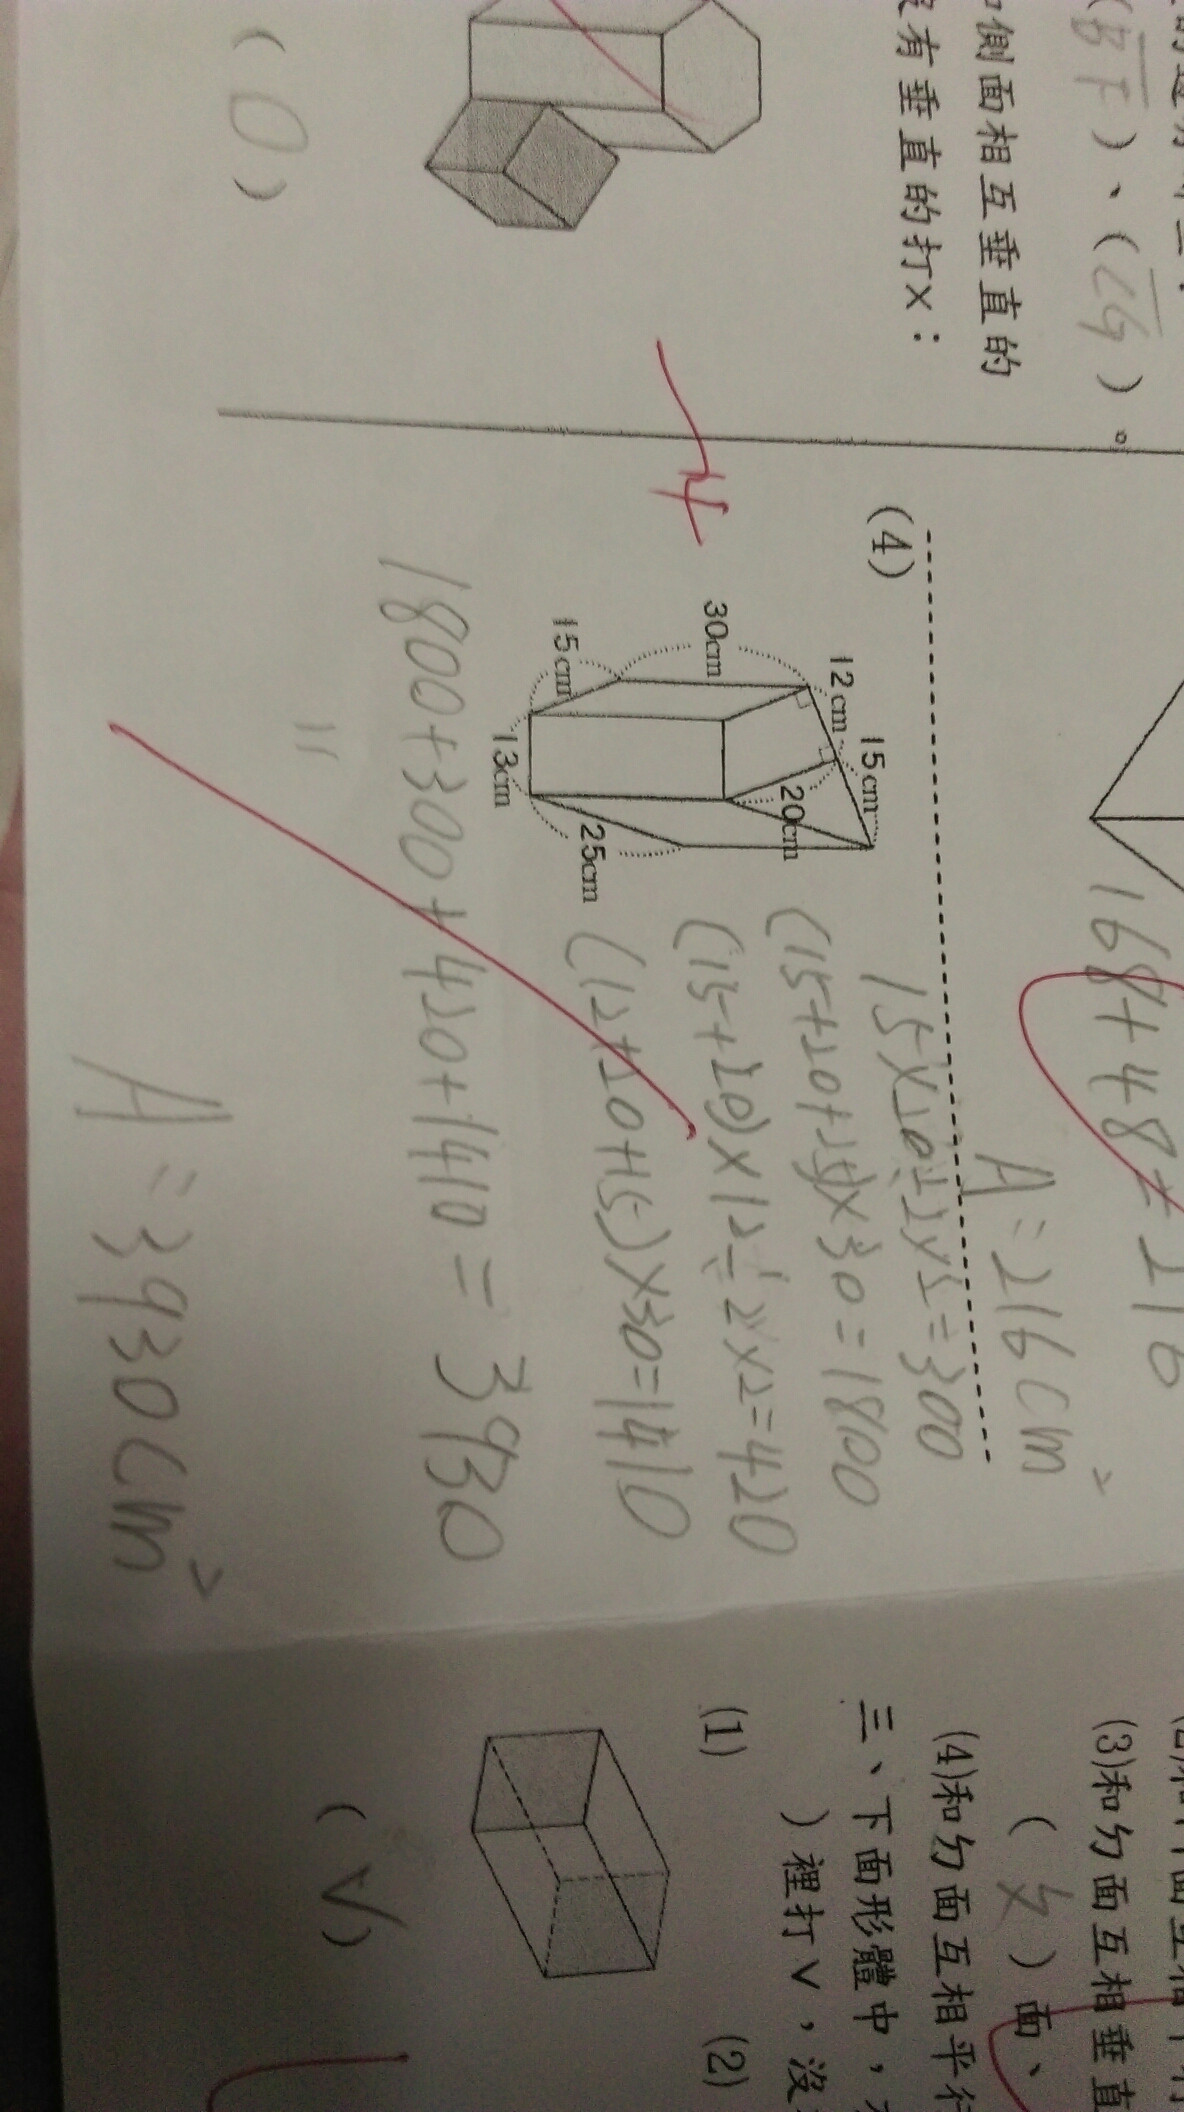 (B̅F̅)、(C̅G̅)。
側面相互垂直的
有垂直的打×：
(O)
168+48=216
A=216cm²
(4)
12cm
15cm
30cm
20cm
15cm
13cm
25cm
15×20÷2×2=300
(15+20+25)×30=1800
(15+20)×12÷2×2=420
(12+20+15)×30=1410
1800+300+420+1410=3930
A=3930cm²
-4
(3)和ㄉ面互相垂直
)面、
(4)和ㄉ面互相平行
三、下面形體中，
)裡打∨，沒
(1)
(2)
(∨)